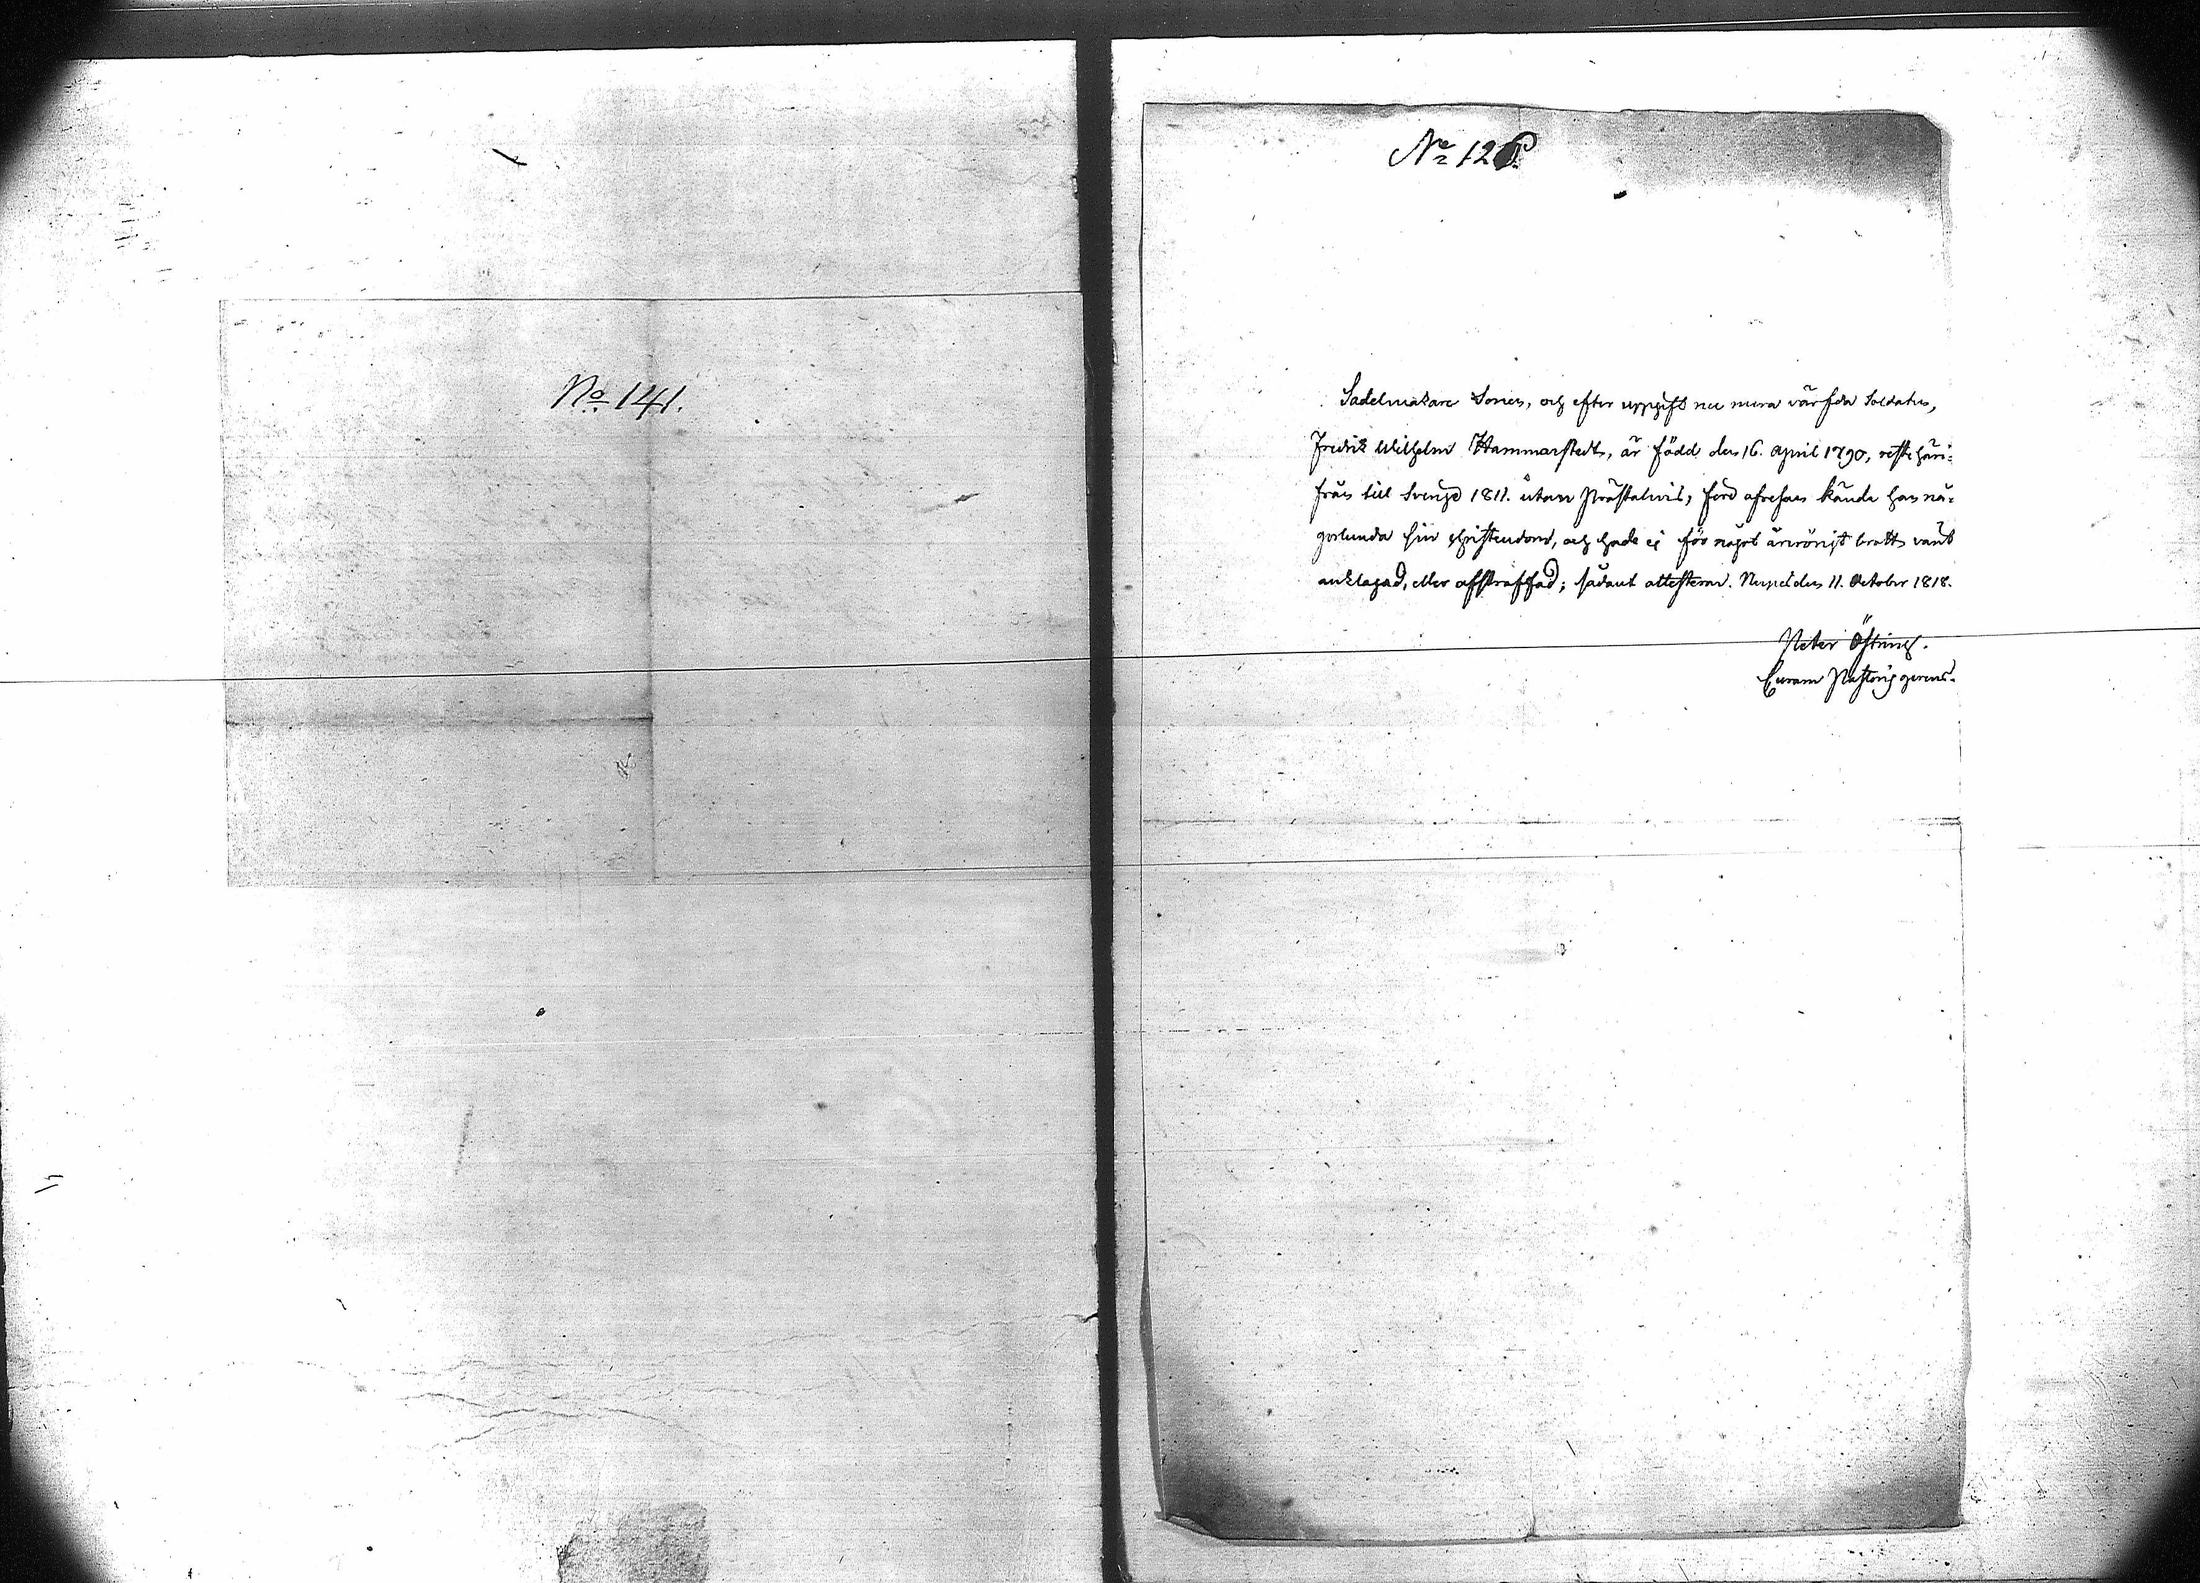 No. 141.
No 128
Sadelmakare Sonen, och efter uppgift nu mera värfda Soldaten,
Fredrik Wilhelm Hammarstedt, är född den 16. April 1790, reste häri-
från till Sverige 1811. utan Prästabevis, förr afresan kände han nå-
gorlunda sin christendom, och hade ej för något ärerörigt brott varit
anklagad, eller afstraffad; sådant attesterar. Nerpes den 11. October 1818.
Peter Östring.
Curam Pastoris gerens.